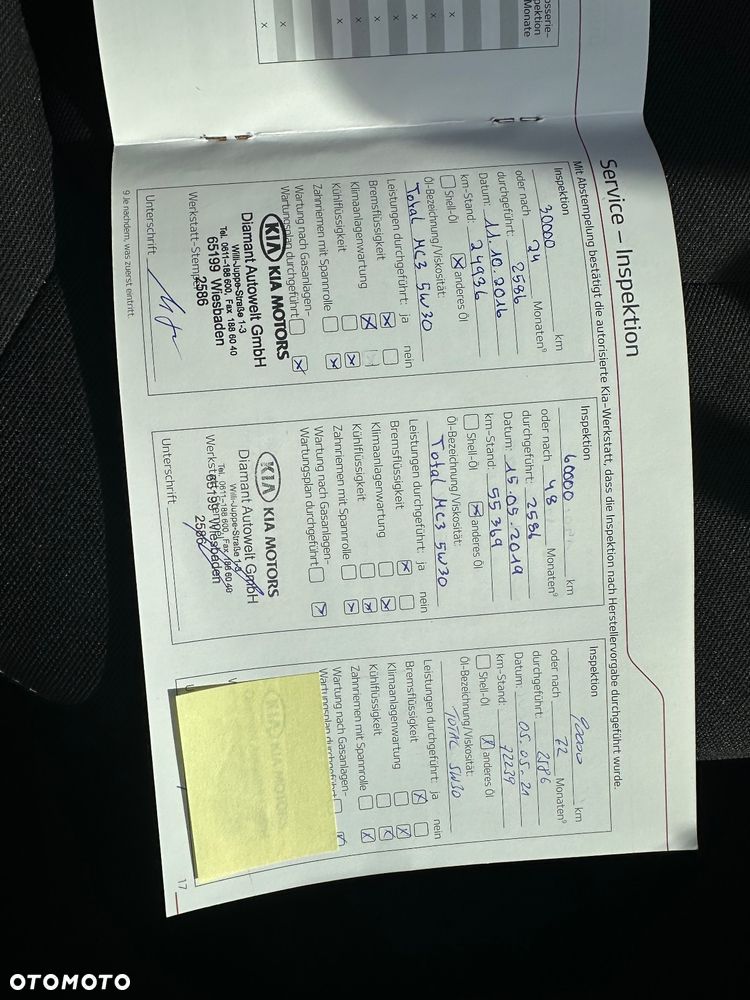 osserie–
pektion
Monate
Service – Inspektion
Mit Abstempelung bestätigt die autorisierte Kia-Werkstatt, dass die Inspektion nach Herstellervorgabe durchgeführt wurde.
Inspektion
30000 km
oder nach 24 Monaten⁹
durchgeführt: 2586
Datum: 11.10.2016
km-Stand: 24936
Shell-Öl x anderes Öl
Öl-Bezeichnung/Viskosität:
Total MC3 5W30
Leistungen durchgeführt: ja nein
Bremsflüssigkeit
Klimaanlagenwartung
Kühlflüssigkeit
Zahnriemen mit Spannrolle
Wartung nach Gasanlagen-
Wartungsplan durchgeführt
KIA KIA MOTORS
Diamant Autowelt GmbH
Willi-Juppe-Straße 1-3
Tel. 0611-188 600, Fax 188 60 40
65199 Wiesbaden
2586
Werkstatt-Stempel
Unterschrift
9 Je nachdem, was zuerst eintritt.
Inspektion
60000 km
oder nach 48 Monaten⁹
durchgeführt: 2586
Datum: 15.05.2019
km-Stand: 55369
Shell-Öl x anderes Öl
Öl-Bezeichnung/Viskosität:
Total MC3 5W30
Leistungen durchgeführt: ja nein
Bremsflüssigkeit
Klimaanlagenwartung
Kühlflüssigkeit
Zahnriemen mit Spannrolle
Wartung nach Gasanlagen-
Wartungsplan durchgeführt
KIA KIA MOTORS
Diamant Autowelt GmbH
Willi-Juppe-Straße 1-3
Tel. 0611-188 600, Fax 188 60 40
65199 Wiesbaden
2586
Unterschrift
Inspektion
90000 km
oder nach 72 Monaten⁹
durchgeführt: 2586
Datum: 05.05.21
km-Stand: 72239
Shell-Öl x anderes Öl
Öl-Bezeichnung/Viskosität:
TOTAL 5W30
Leistungen durchgeführt: ja nein
Bremsflüssigkeit
Klimaanlagenwartung
Kühlflüssigkeit
Zahnriemen mit Spannrolle
Wartung nach Gasanlagen-
Wartungsplan durchgeführt
17
OTOMOTO